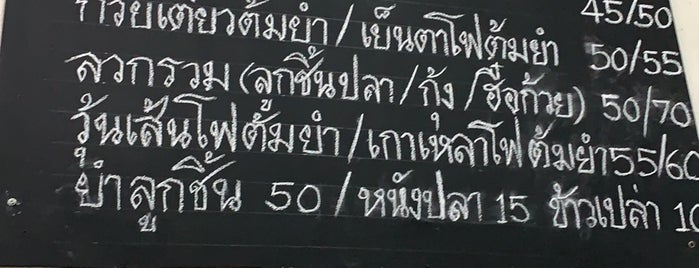 ก๋วยเตี๋ยวต้มยำ / เย็นตาโฟต้มยำ 45/50
50/55
ลวกรวม (ลูกชิ้นปลา / กุ้ง / ฮื่อก้วย) 50/70
วุ้นเส้นโฟต้มยำ / เกาเหลาโฟต้มยำ 55/60
ยำลูกชิ้น 50 / หนังปลา 15 ข้าวเปล่า 10